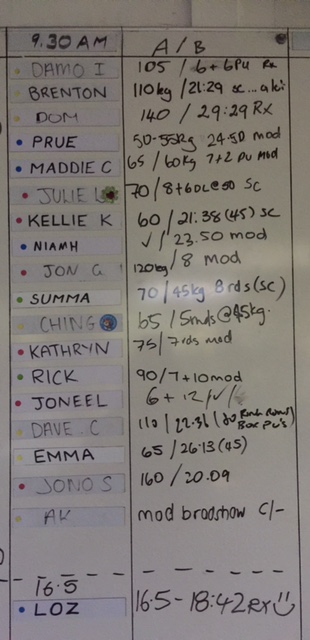 9.30 AM A/B
DAMO I 105 / 6+6PU Rx
BRENTON 110kg / 21:29 sc...
DOM 140 / 29:29 Rx
PRUE 50-55kg 24.50 mod
MADDIE C 65 / 60kg 7+2 PU mod
JULIE L 70 / 8+6DL@50 SC
KELLIE K 60 / 21:38 (45) SC
NIAMH √ / 23.50 mod
JON G 120kg / 8 mod
SUMMA 70 / 45kg 8rds (sc)
CHING 65 / 5rnds @45kg.
KATHRYN 75 / 7rds mod
RICK 90 / 7+10mod
JONEEL 6+12 /√/
DAVE.C 110 / 22.36 (20
Box PU's)
EMMA 65 / 26:13 (45)
JONO S 160 / 20.09
AK mod bradshow C/-
16.5
LOZ 16:5-18:42 Rx